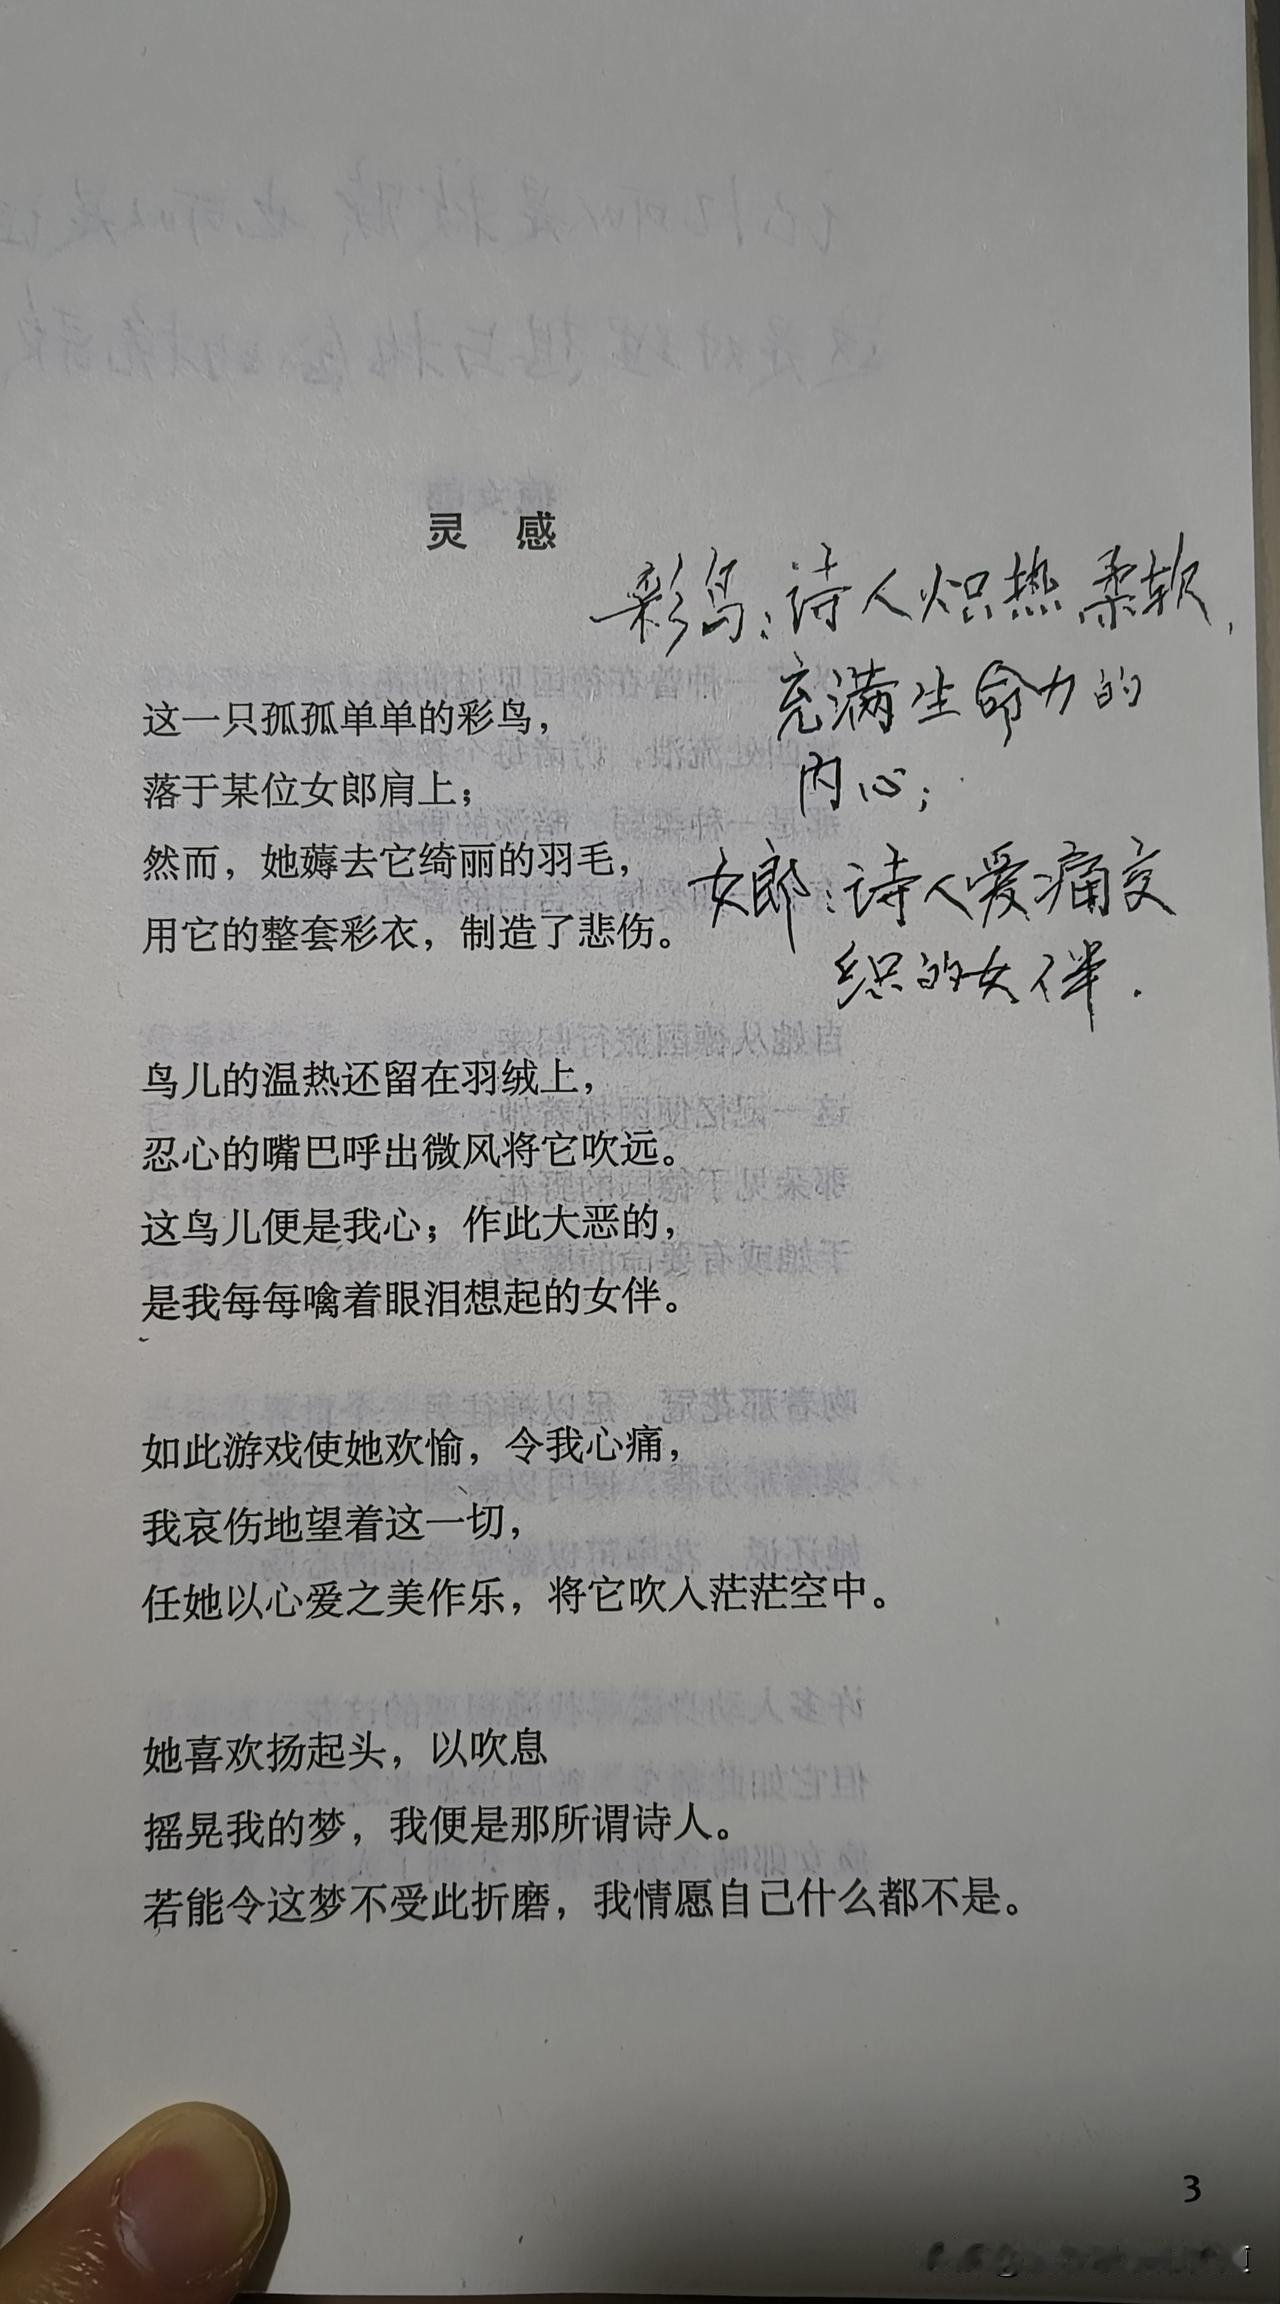 灵 感
彩鸟：诗人炽热柔软，
充满生命力的
内心；
女郎：诗人爱痛交
织的女伴．
这一只孤孤单单的彩鸟，
落于某位女郎肩上；
然而，她薅去它绮丽的羽毛，
用它的整套彩衣，制造了悲伤。
鸟儿的温热还留在羽绒上，
忍心的嘴巴呼出微风将它吹远。
这鸟儿便是我心；作此大恶的，
是我每每噙着眼泪想起的女伴。
如此游戏使她欢愉，令我心痛，
我哀伤地望着这一切，
任她以心爱之美作乐，将它吹入茫茫空中。
她喜欢扬起头，以吹息
摇晃我的梦，我便是那所谓诗人。
若能令这梦不受此折磨，我情愿自己什么都不是。
3